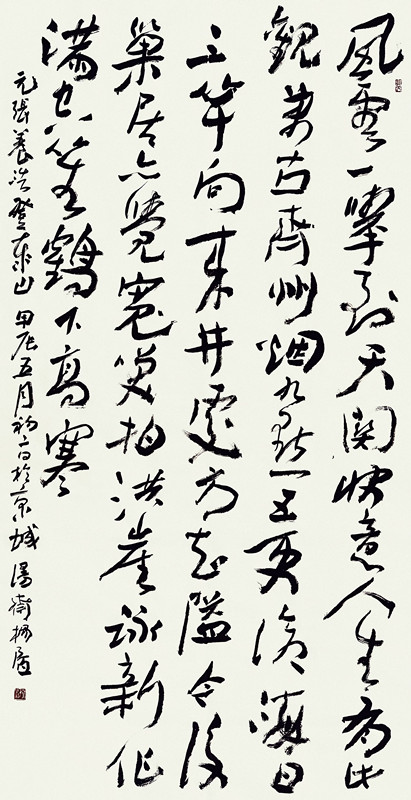 風雲一舉到天関快意人生有此
觀萬古齊州烟九點五更滄海日
三竿向來井處方知隘今後
巢居亦覺寬笑拍洪崖詠新作
滿空笙鶴下高寒
元張養浩登泰山 甲辰五月初六日於京城